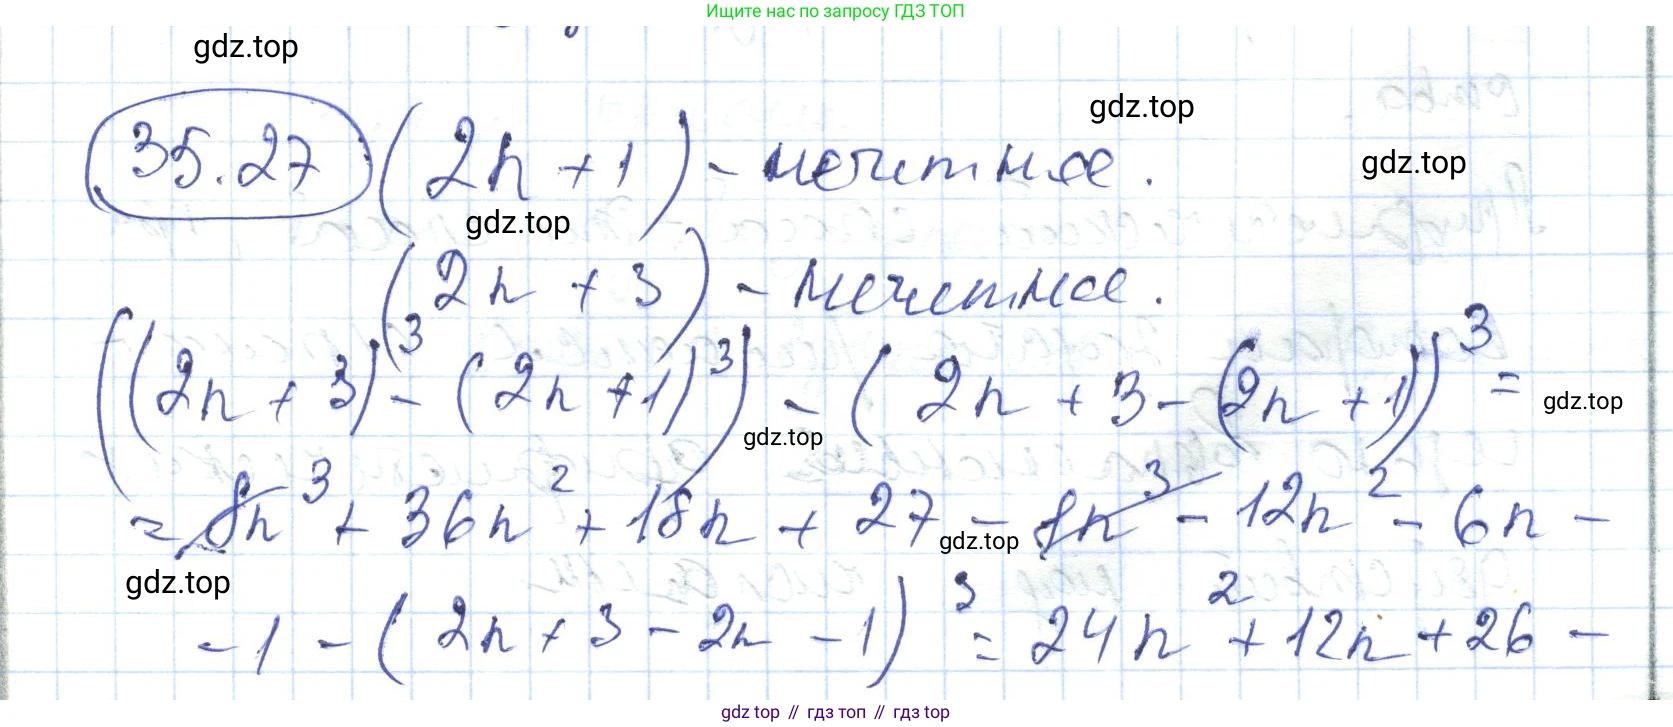 Ищите нас по запросу ГДЗ ТОП
gdz.top
gdz.top
35.27 (2n + 1) - нечетное.
gdz.top
gdz.top
(2n + 3) - нечетное.
((2n + 3)³ - (2n + 1)³) - (2n + 3 - (2n + 1))³ =
gdz.top
gdz.top
= 8n³ + 36n² + 18n + 27 - 8n³ - 12n² - 6n -
gdz.top
gdz.top
- 1 - (2n + 3 - 2n - 1)³ = 24n² + 12n + 26 -
gdz top // гдз топ // гдз top